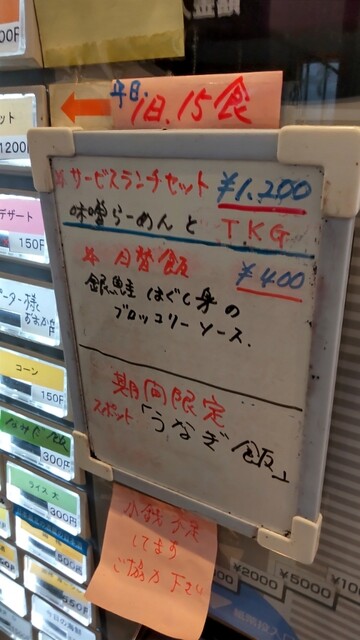 平日 1日.15食
※サービスランチセット ¥1.200
味噌らーめんと TKG
※月替飯 ¥400
銀鮭ほぐし身の
ブロッコリーソース.
期間限定
スポット「うなぎ飯」
小銭不足
してます
ご協力下さい
1200
デザート
150円
コーン
150円
300円
ライス大
300円
500円
550円
¥2000
¥5000